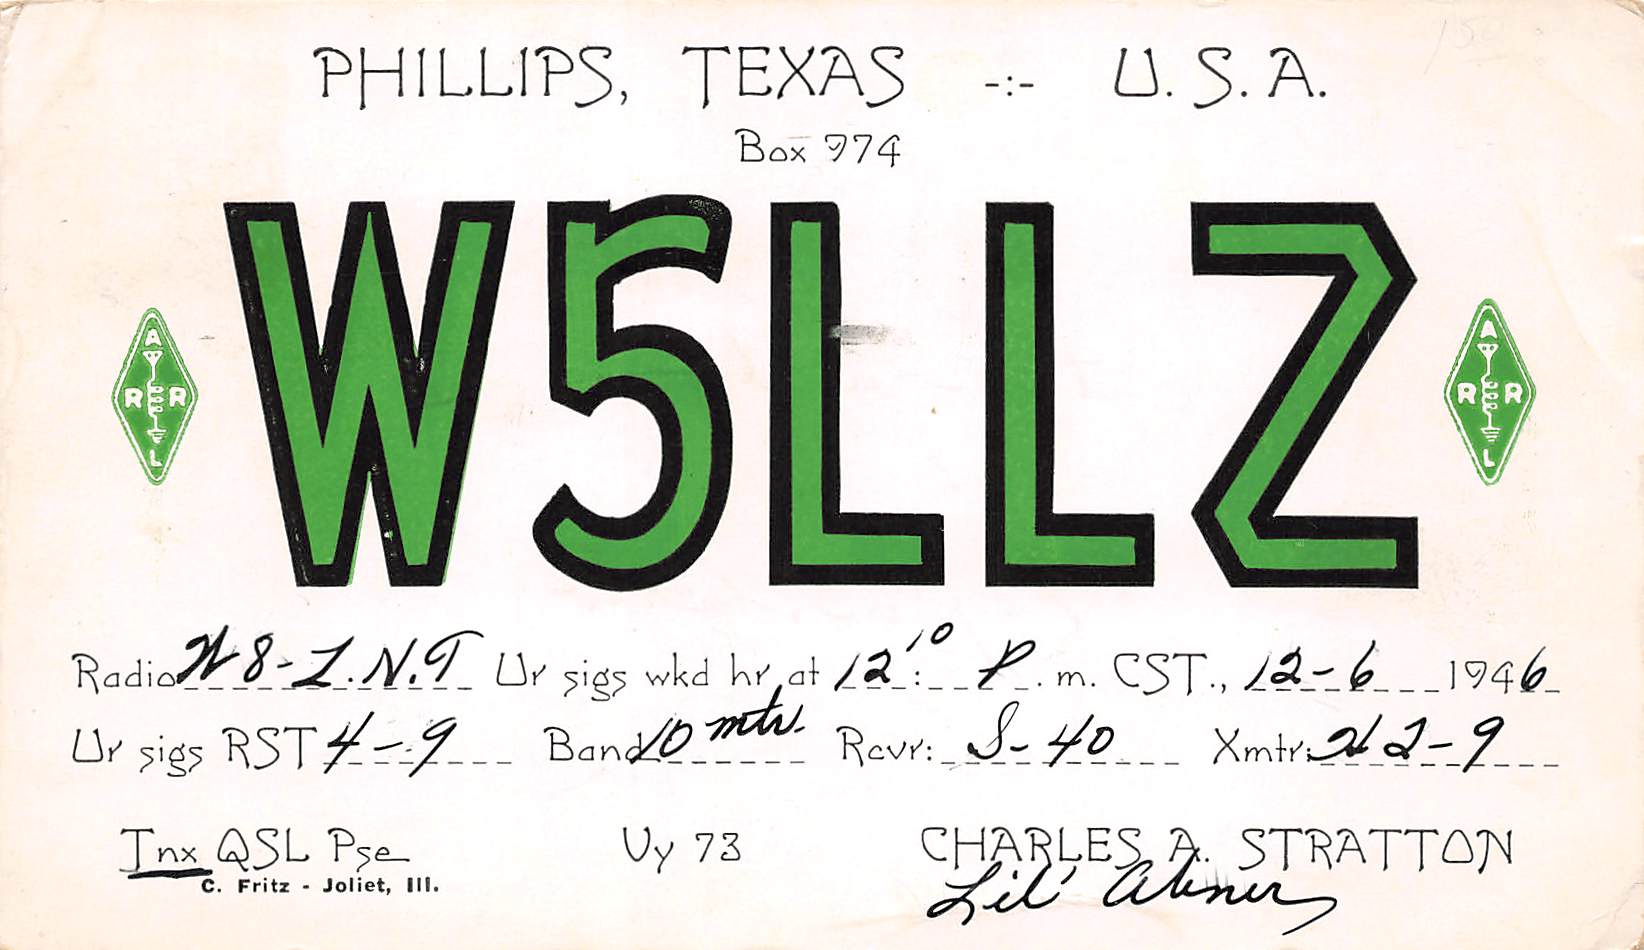 PHILLIPS, TEXAS -:- U. S. A.
Box 974
W5LLZ
A R R L
A R R L
Radio W8-L.N.T Ur sigs wkd hr at 12:10 P. m. CST., 12-6 1946
Ur sigs RST 4-9 Band 10 mtr. Rcvr: S-40 Xmtr: 2-9
Tnx QSL Pse Vy 73 CHARLES A. STRATTON
C. Fritz - Joliet, Ill. Lil' Abner